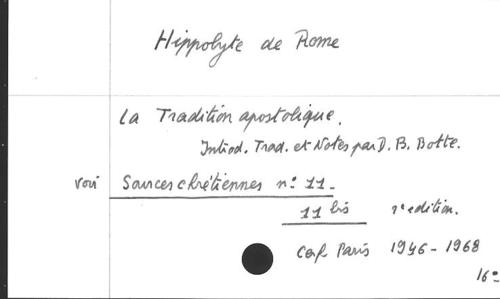 Hippolyte de Rome
La Tradition apostolique.
Introd. Trad. et Notes par D. B. Botte.
voir Sources chrétiennes n° 11.
11 bis 2e edition.
Cerf Paris 1946-1968
16°